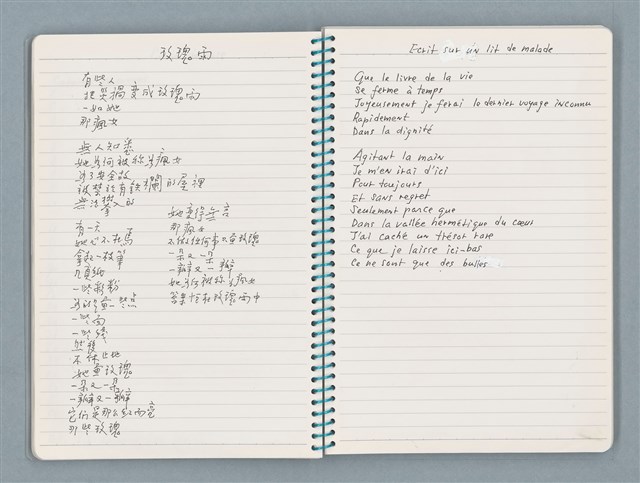 玫瑰雨
有些人
把災禍變成玫瑰雨
一如她
那瘋女
無人知悉
她為何被稱為瘋女
為了安全故
被禁於有鉄欄的屋裡
有一天
她心不在焉
拿起一枝筆
幾頁紙
一些彩粉
一些點
一些面
一些線
然後
不休止地
她畫玫瑰
一朵又一朵
一瓣又一瓣
它們是那么紅而
那些玫瑰
她變得無言
那瘋女
不做任何事只畫玫瑰
一朵又一朵
一瓣又一瓣
她為何被稱為瘋女
答案恒在玫瑰雨中
Ecrit sur un lit de malade
Que le livre de la vie
Se ferme à temps
Joyeusement je ferai le dernier voyage inconnu
Rapidement
Dans la dignité
Agitant la main
Je m'en irai d'ici
Pour toujours
Et sans regret
Seulement parce que
Dans la vallée hermétique du cœur
J'ai caché un trésor rare
Ce que je laisse ici-bas
Ce ne sont que des bulles